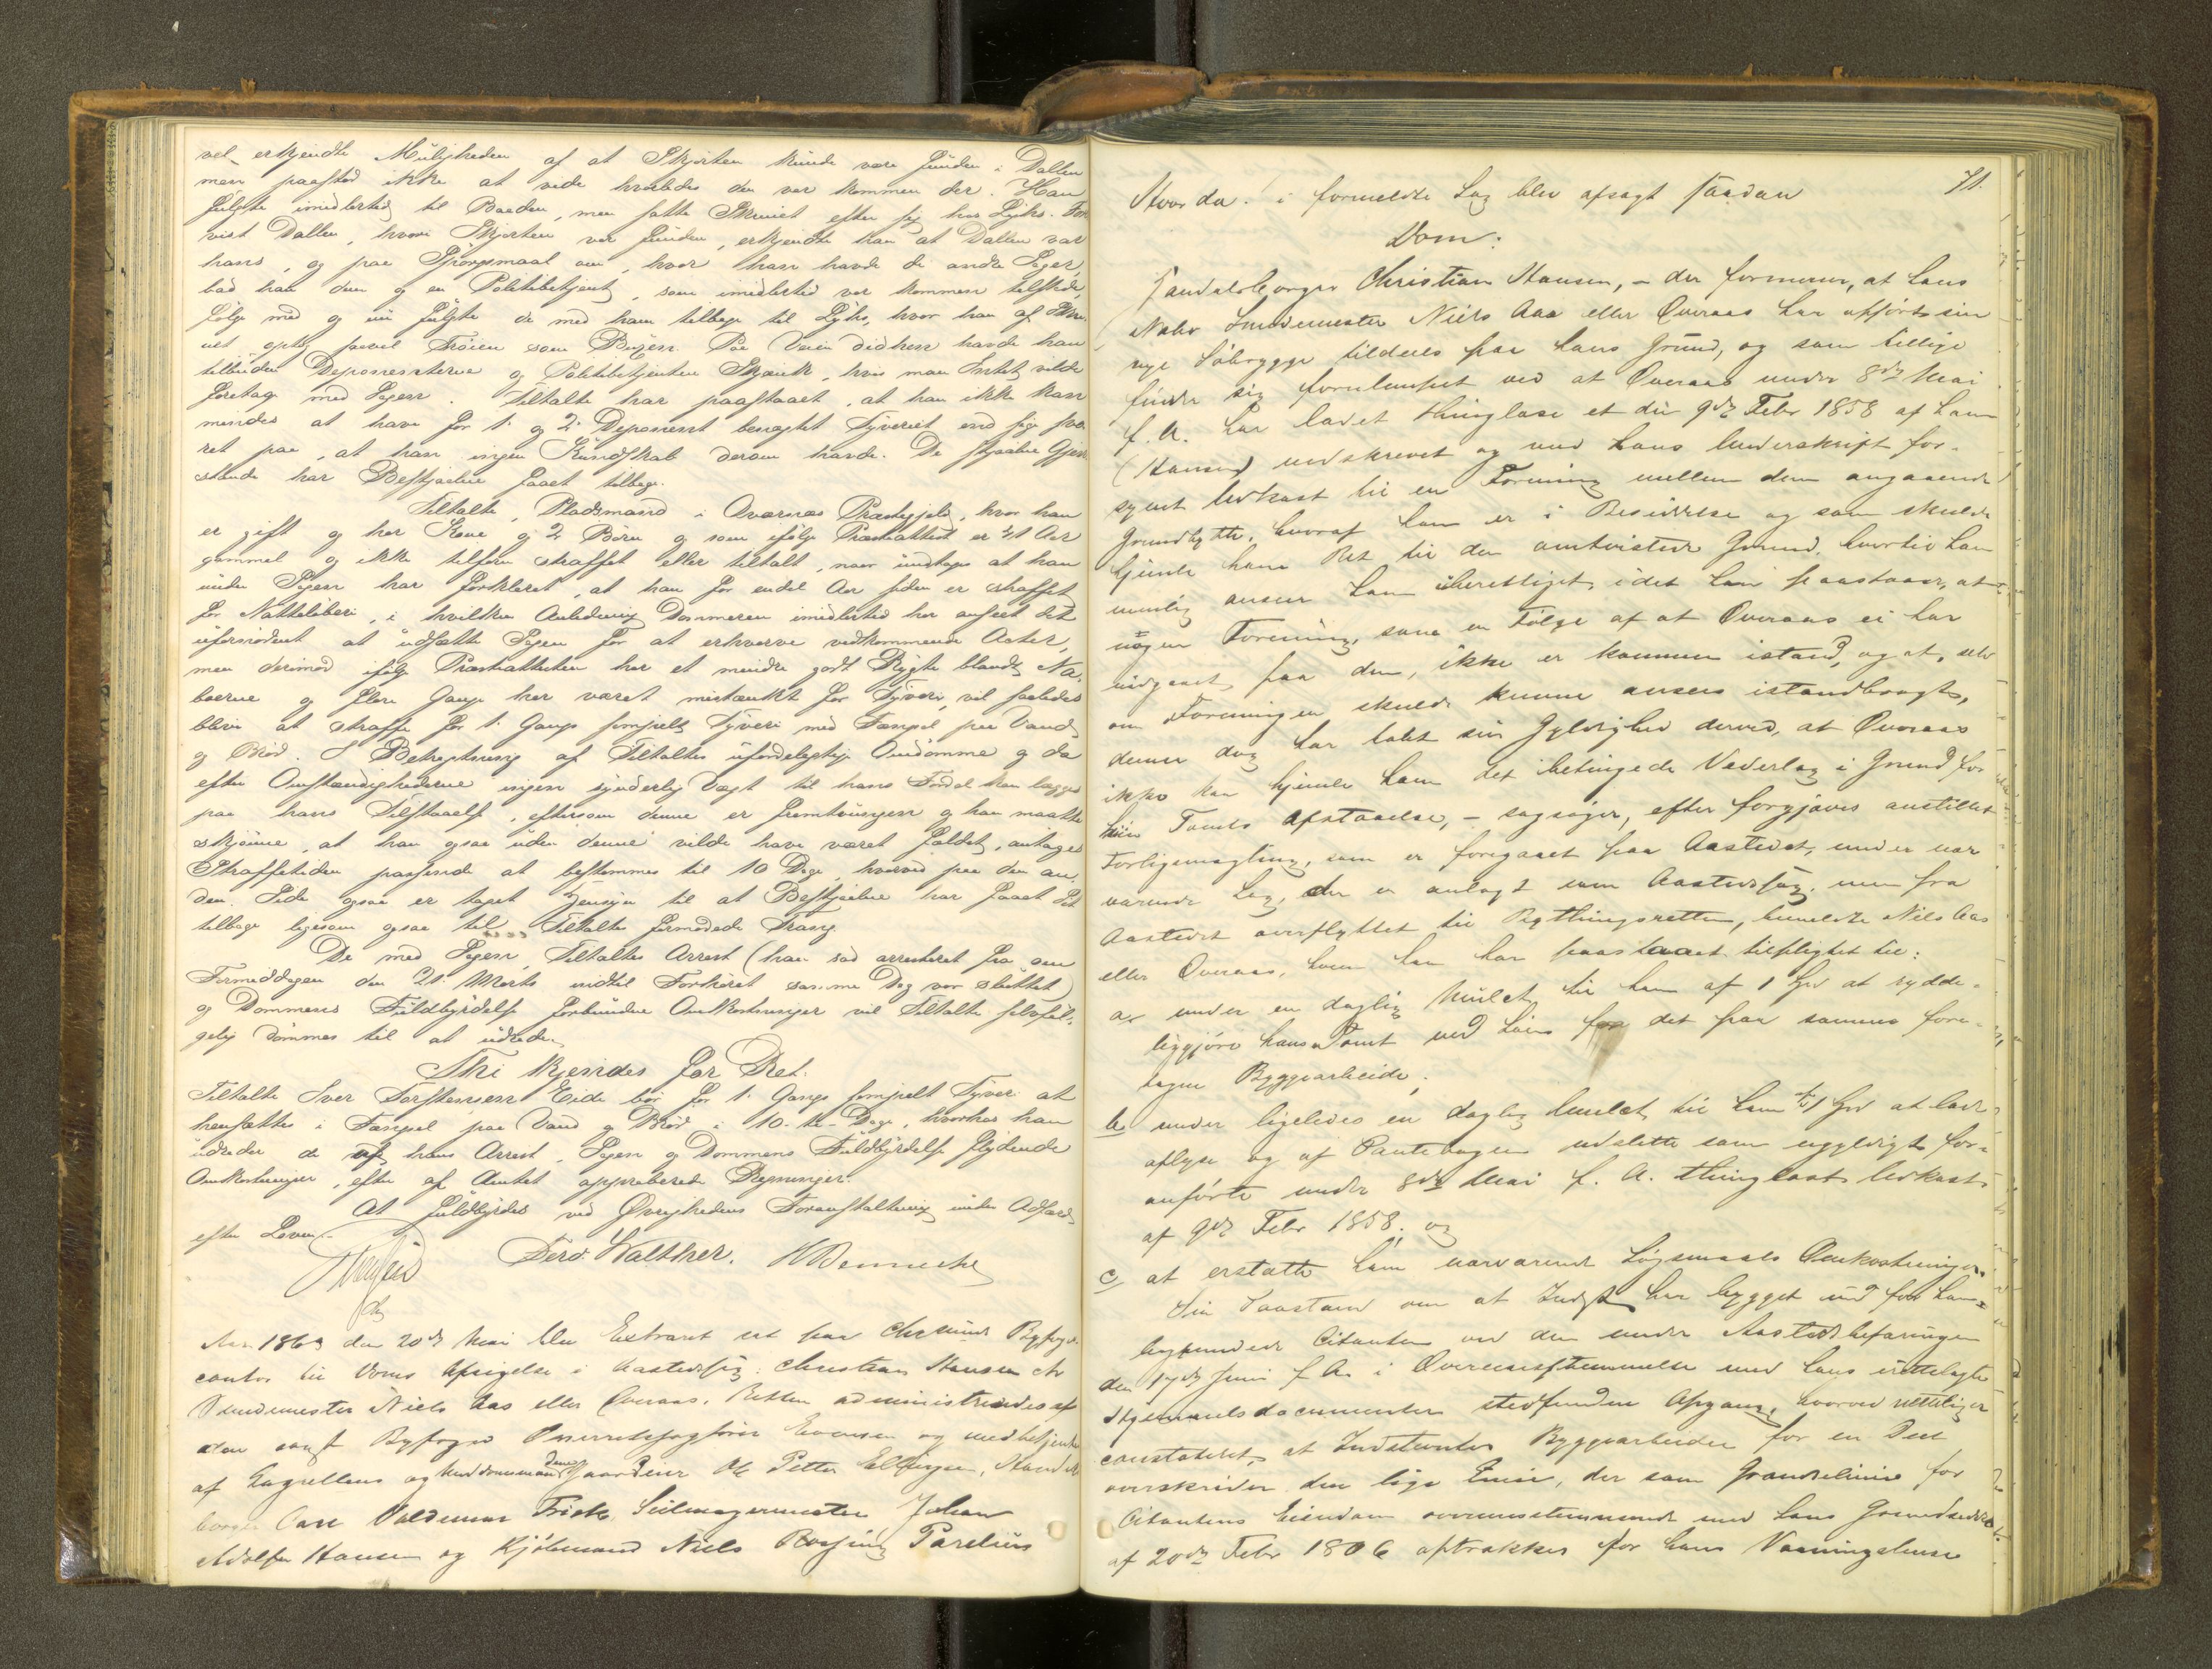 vel erkjendte Muligheden af at Skjorten kunde være funden i Dallen
men paastod ikke at vide hvorledes den var kommen der. Han
fulgte imidlertid til Baaden, men satte Skrinet efter sig hos Lyhs. For
vist Dallen, hvori Skjorten var funden, erkjendte han at Dallen var
hans, og paa Spørgsmaal om, hvor han havde de andre Sager,
bad han dem og en Politibetjent, som imidlertid var kommen tilstede,
følge med og nu fulgte de med ham tilbage til Lyhs, hvor han af Skri-
net optog saavel Trøien som Buxen. Paa Veien didhen havde han
tilbudt Deponenterne og Politibetjenten Skjænk, hvis man Intet vilde
foretage med Sagen. Tiltalte har paastaaet, at han ikke kan
mindes at have for 1. og 2. Deponent benegtet Tyveriet, end sige sva-
ret paa, at han ingen Kundskab derom havde. De stjaalne Gjen-
stande har Bestjaalne faaet tilbage.
Tiltalte, Pladsmand i Qværnæs Præstegjeld, hvor han
er gift og har Kone og 2 Børn og som ifølge Præsteattest er 41 Aar
gammel og ikke tilforn straffet eller tiltalt, naar undtages at han
under Sagen har forklaret, at han for endel Aar siden er straffet
for Natteløberi, i hvilken Anledning Dommeren imidlertid har anseet det
ufornødent at udsætte Sagen for at erhverve vedkommende Acter,
men derimod ifølge Præsteattesten har et mindre godt Rygte blandt Na-
boerne og flere Gange har været mistænkt for Tyveri, vil saaledes
blive at straffe for 1. Gangs simpelt Tyveri med Fængsel paa Vand
og Brød. I Betragtning af Tiltaltes ufordelagtige Omdømme og da
efter Omstændighederne ingen synderlig Vægt til hans Fordel kan lægges
paa hans Tilstaaelse, eftersom denne er fremtvungen og han maatte
skjønne, at han ogsaa uden denne vilde have været fældet, antages
Straffetiden passende at bestemmes til 10 Dage, hvorved paa den an-
den Side ogsaa er taget Hensyn til at Bestjaalne har faaet Sit
tilbage ligesom ogsaa til Tiltaltes formodede Trang.
De med Sagen, Tiltaltes Arrest (han sad arresteret fra om
Formiddagen den 21. Marts indtil Forhøret samme Dag var sluttet)
og Dommens Fuldbyrdelse forbundne Omkostninger vil Tiltalte selvføl-
gelig dømmes til at udrede.
Thi kjendes for Ret:
Tiltalte Iver Torstensen Eide bør for 1. Gangs simpelt Tyveri at
hensættes i Fængsel paa Vand og Brød i 10 - ti - Dage, hvorhos han
udreder de af hans Arrest, Sagen og Dommens Fuldbyrdelse flydende
Omkostninger, efter af Amtet approberede Regninger.
At fuldbyrdes ved Øvrighedens Foranstaltning under Adfærd
efter Loven.
Ferd. Walther.
Aar 1863 den 20de Mai blev Extraret sat paa Chrsunds Byfogd-
contor til Doms Afsigelse i Aastedssag: Christian Hansen ctr
Smedemester Niels Aas eller Overaas. Retten administreredes af
den const Byfoged Overretssagfører Evensen og medbetjentes
af Lagrettens og Meddomsmænd Gaardeier Ole Petter Ellingsen, Handels-
borger Carl Valdemar Frisk, Seilmagermester Johan
Adolfer Hansen og Kjøbmand Niels Rossing Parelius
71.
Hvor da i formeldte Sag blev afsagt saadan
Dom:
Handelsborger Christian Hansen, – der formener, at hans
Nabo Smedemester Niels Aas eller Overaas har opført sin
nye Søbrygge tildeels paa hans Grund, og som tillige
finder sig fornærmet ved at Overaas under 8de Mai
f. A. har ladet thinglæse et du 9de Febr 1858 af ham
(Hansen) nedskrevet og med hans Underskrift for-
synet Udkast til en Forening mellem dem angaaende
Grundbytte, hvoraf han er i Besiddelse og som skulde
hjemle ham Ret til den omtvistede Grund, hvortil han
nemlig anser ham uberettiget, idet han paastaar, at
nogen Forening, som en Følge af at Overaas ei har
indgaaet paa den, ikke er kommen istand, og at, selv
om Foreningen skulde kunne ansees istandbragt,
denne dog har tabt sin Gyldighed derved, at Overaas
ikke kan hjemle ham det betingede Vederlag i Grund for
hiin Tomts Afstaaelse, – sagsøger, efter forgjæves anstillet
Forligsmægling, som er foregaaet paa Aastedet, under nær-
værende Sag, der er anlagt som Aastedssag, men fra
Aastedet overflyttet til Bythingsretten, bemeldte Niels Aas
eller Overaas, hvem han har paastaaet tilpligtet til:
a, under en daglig Mulct til ham af 1 Spd at rydde-
liggjøre hans Tomt ved Søen for det paa samme fore-
tagne Byggearbeide;
b, under ligeledes en daglig Mulct til ham af 1 Spd at lade
aflyse og af Pantebogen udslette som ugyldigt for-
anførte under 8de Mai f. A. thinglæst Udkast
af 9de Febr 1858; og
c, at erstatte ham nærværende Søgsmaals Omkostninger.
Sin Paastand om at Indst har bygget ind paa ham
begrunder Citanten ved den under Aastedsbefaringen
den 17de Juni f A. i Overensstemmelse med hans irettelagte
Hjemmelsdocumenter stedfundne Opgang, hvorved nemlig er
constateret, at Indstevntes Byggearbeider for en Deel
overskrider den lige Linie, der som Grændselinie for
Citantens Eiendom overensstemmende med hans Grundseddel
af 20de Febr 1806 aftrækkes for hans Vaaningshuus